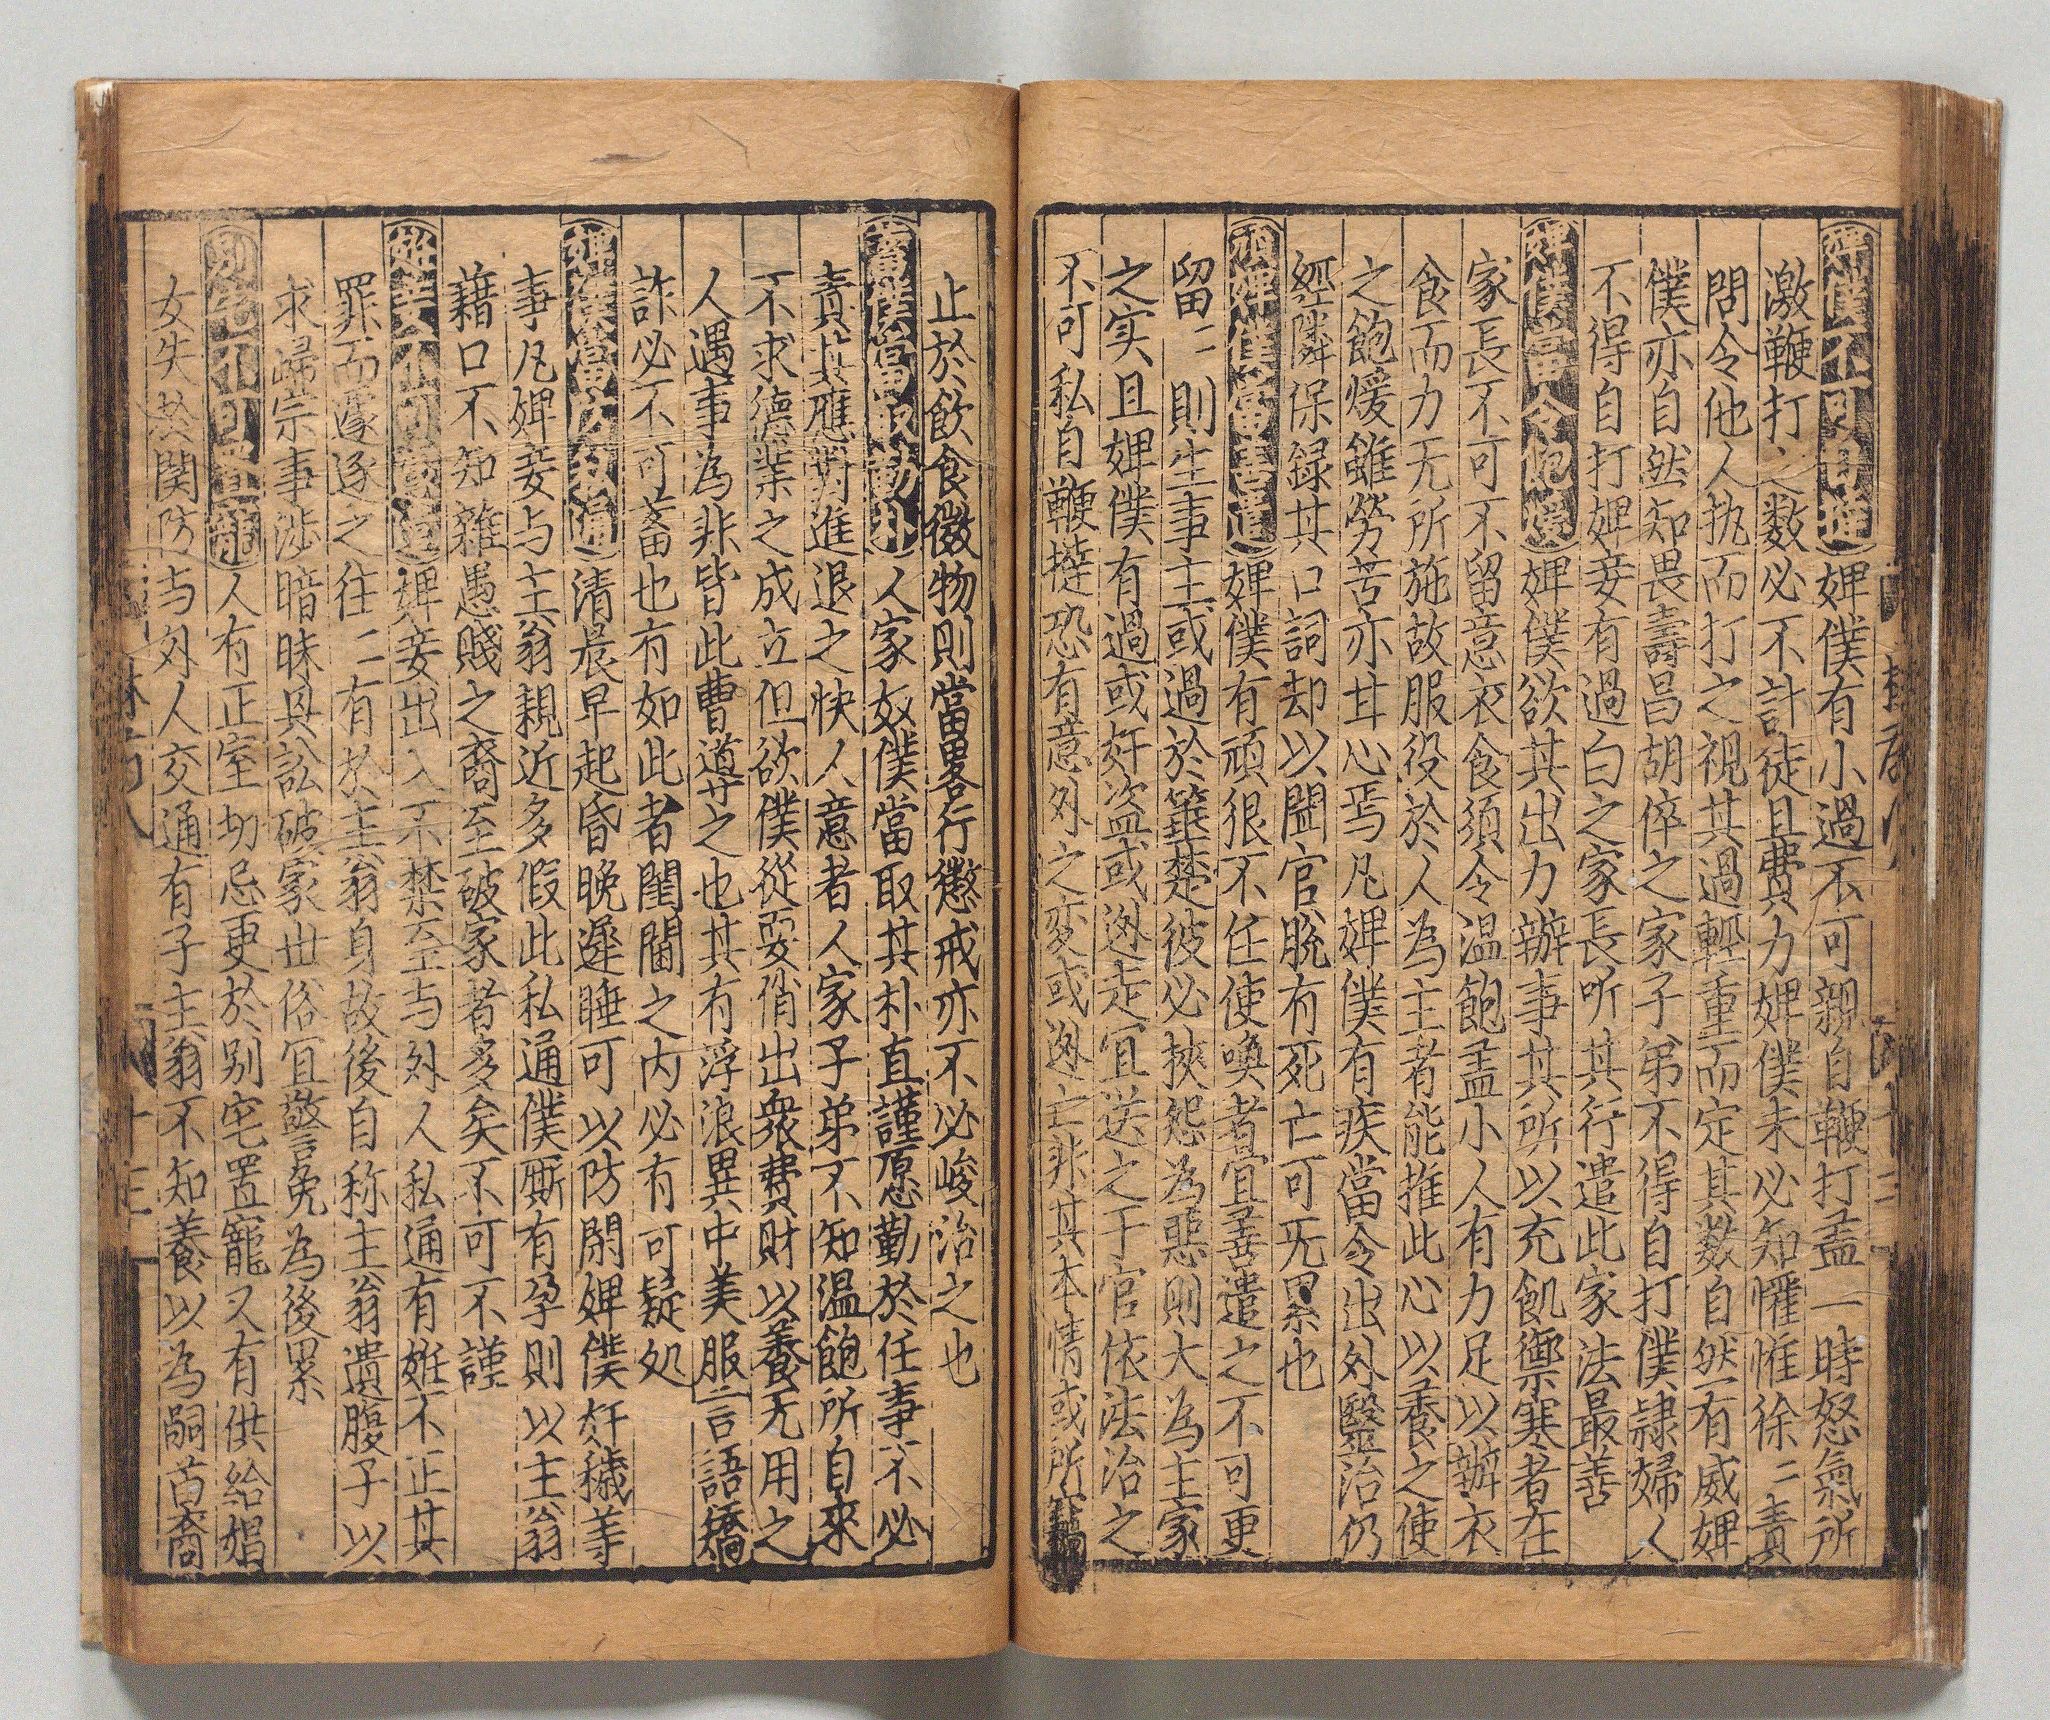 婢僕不可自鞭 婢僕有小過不可親自鞭打盖一時怒氣所
激鞭打之数必不計徒且費力婢僕未必知懼惟徐〻責
問令他人執而打之視其過輕重而定其数自然有威婢
僕亦自然知畏壽昌胡倅之家子弟不得自打僕隷婦人
不得自打婢妾有過白之家長家長听其行遣此家法最善
婢僕當令飽煖 婢僕欲其出力辦事其所以充飢禦寒者在
家長不可不留意衣食須令温飽盖小人有力足以辦衣
食而力无所施故服役於人為主者能推此心以養之使
之飽煖雖勞苦亦甘心焉凡婢僕有疾當令出外醫治仍
經隣保録其口詞却以聞官脱有死亡可旡累也
婢僕當善遣 婢僕有頑狠不任使喚者宜善遣之不可更
留〻則生事主或過於箠楚彼必挾怨為惡則大為主家
之实且婢僕有過或奸盗或迯走宜送之于官依法治之
不可私自鞭撻恐有意外之変或迯亡非其本情或所竊
止於飲食微物則當畧行懲戒亦不必峻治之也
當取勤朴 人家奴僕當取其朴直謹愿勤於任事不必
責其應對進退之快人意者人家子弟不知温飽所自來
不求德業之成立但欲僕從耍俏出衆費財以養无用之
人遇事為非皆此曹導之也其有浮浪異中美服言語矯
詐必不可畜也有如此者閨閫之内必有可疑処
婢僕當防私通 清晨早起昏晚遲睡可以防閑婢僕奸穢等
事凡婢妾与主翁親近多假此私通僕厮有孕則以主翁
藉口不知雜愚賤之裔至破家者多矣不可不謹
婢妾不可 婢妾出入不禁至与外人私通有姙不正其
罪而遽逐之往〻有於主翁身故後自称主翁遺腹子以
求歸宗事渉暗昧興訟破家世俗宜警免為後累
別宅不可置寵 人有正室切忌更於别宅置寵又有供給娼
女失於関防与外人交通有子主翁不知養以為嗣苗裔